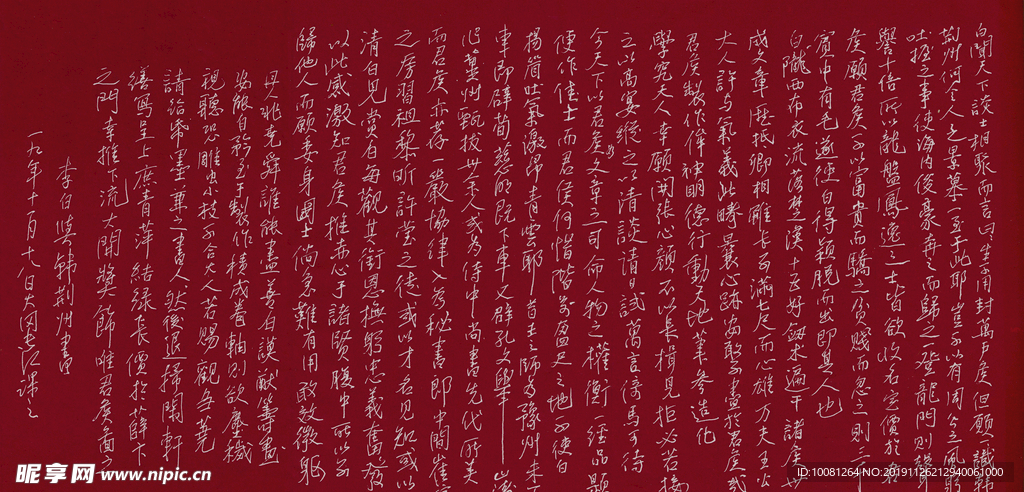 白闻天下談士相聚而言曰生不用封萬戶侯但願一識韓
荆州何令人之景慕一至于此耶豈不以有周公之風躬
吐握之事使海内俊豪奔之而歸之登龍門則聲
譽十倍所以龍盤鳳逸之士皆欲收名定價於君
侯願君侯不以富貴而驕之貧賤而忽之則三千
賓中有毛遂使白得穎脫而出即其人也
白隴西布衣流落楚漢十五好劍術遍干諸侯卅
成文章歷抵卿相雖長不滿七尺而心雄萬夫王公
大人許与氣義此疇曩心跡安敢不盡於君侯哉
君侯製作侔神明德行動天地筆參造化
學究天人幸願開張心顏不以長揖見拒必若接
之以高宴縱之以清談請日試萬言倚馬可待
今天下以君侯為文章之司命人物之權衡一經品題
便作佳士而君侯何惜階前盈尺之地不使白
揚眉吐氣激昂青雲耶昔王子師為豫州未下
車即辟荀慈明既下車又辟孔文舉山濤
作冀州甄拔卅余人或為侍中尚書先代所美
而君侯亦荐一嚴協律入為秘書郎中間崔宗
之房習祖黎昕許瑩之徒或以才名見知或以
清白見賞白每觀其銜恩撫躬忠義奮發
以此感激知君侯推赤心于諸賢腹中所以不
歸他人而願委身國士倘急難有用敢效微軀
且人非堯舜誰能盡善白謨猷籌畫
安能自矜至于製作積成卷軸則欲塵穢
視聽恐雕虫小技不合大人若賜觀芻蕘
請給紙墨兼之書人然後退掃閑軒
繕寫呈上庶青萍結綠長價於薛卞
之門幸推下流大開獎飾唯君侯圖
李白與韓荆州書
一九年十一月十八日
昵享网 www.nipic.cn
ID:10081264 NO:20191126212940061000